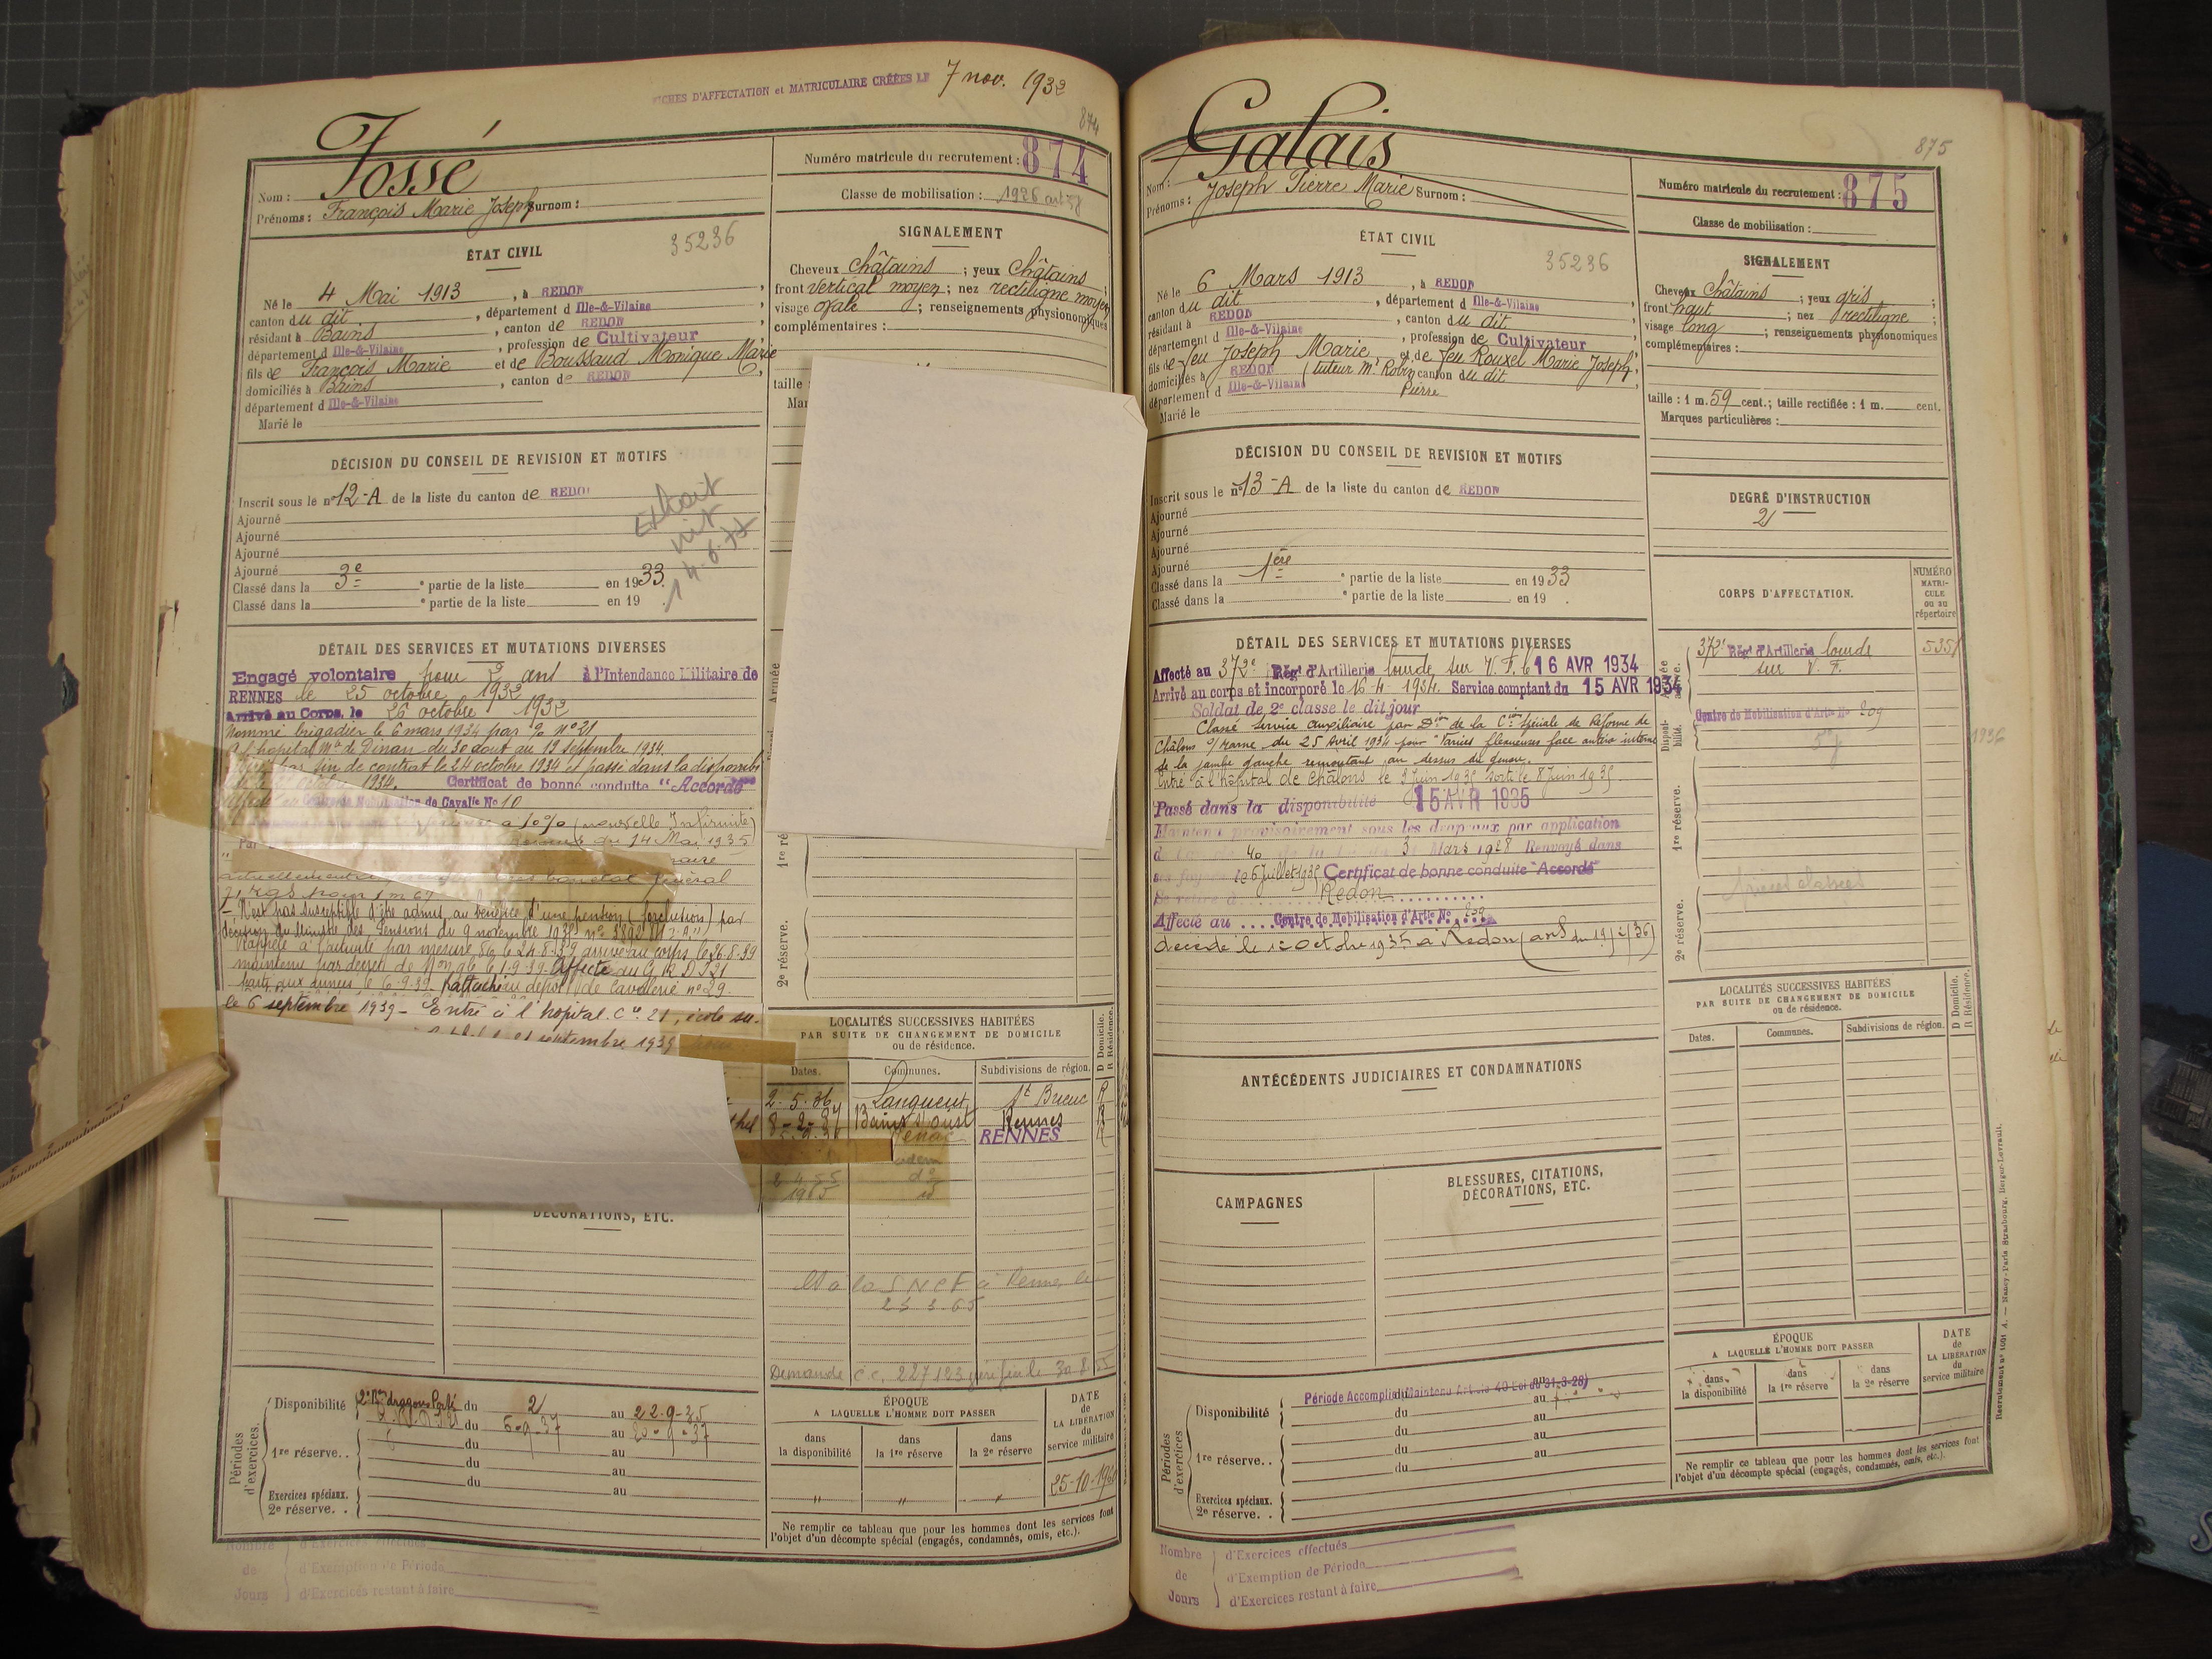 FICHES D'AFFECTATION et MATRICULAIRE CRÉÉES LE 7 nov. 1932
874
Fossé
Nom :
Prénoms : François Marie Joseph Surnom :
Numéro matricule du recrutement : 874
Classe de mobilisation : 1936
ÉTAT CIVIL
35236
Né le 4 Mai 1913, à REDON,
canton du dit, département d Ille-&-Vilaine,
résidant à Bains, canton de REDON,
département d Ille-&-Vilaine, profession de Cultivateur
fils de François Marie et de Boussaud Monique Marie
domiciliés à Bains, canton de REDON,
département d Ille-&-Vilaine
Marié le
SIGNALEMENT
Cheveux Châtains ; yeux Châtains ;
front vertical moyen ; nez rectiligne moyen
visage ovale ; renseignements physionomiques
complémentaires :
taille :
Mar
DÉCISION DU CONSEIL DE REVISION ET MOTIFS
Inscrit sous le n° 12-A de la liste du canton de REDON
Ajourné
Ajourné
Ajourné
Ajourné
Classé dans la 3e partie de la liste en 1933.
Classé dans la e partie de la liste en 19 .
DÉTAIL DES SERVICES ET MUTATIONS DIVERSES
Engagé volontaire pour 2 ans à l'Intendance Militaire de
RENNES le 25 octobre 1932
Arrivé au Corps, le 26 octobre 1932
Nommé brigadier le 6 mars 1934 par n° 21
hôpital Mre de Dinan du 30 aout au 19 septembre 1934
par fin de contrat le 24 octobre 1934 et passé dans la disponibi
octobre 1934. Certificat de bonne conduite "Accordé"
Centre de Mobilisation de Cavalie No 10
à 10% (nouvelle Infirmité)
du 14 Mai 1935
actuellement état général
71 kgs pour 1 m 67
N'est pas susceptible d'être admis au bénéfice d'une pension (forclusion) par
décision du Ministre des Pensions du 9 novembre 1935
Rappelé à l'activité par mesure le 24.8.39 arrivé au corps le 26-8-39
maintenu par décret de Mon gle le 1-9-39. Affecté au G R D I 21
parti aux armées le 6-9-39. Rattaché au dépôt de Cavalerie n° 29.
le 6 septembre 1939 - Entré à l'hopital. Cre 21, école su-
21 septembre 1939
LOCALITÉS SUCCESSIVES HABITÉES
PAR SUITE DE CHANGEMENT DE DOMICILE
ou de résidence.
D Domicile.
R Résidence.
Dates. Communes. Subdivisions de région.
2-5-36 Langueux St Brieuc R
8-2-37 Bains s/ oust Rennes R
RENNES R
idem
d°
1965 id
DÉCORATIONS, ETC.
à la SNCF à Rennes le
23 3.65
Demande C.C. 227123
Périodes d'exercices.
Disponibilité 2e Bon dragons Portés du 2 au 22-9-35
du 6-9-37 au 20-9-37
1re réserve. . du au
du au
du au
Exercices spéciaux.
2e réserve. .
ÉPOQUE
A LAQUELLE L'HOMME DOIT PASSER
dans la disponibilité
dans la 1re réserve
dans la 2e réserve
DATE de LA LIBÉRATION du service militaire
" " "
25-10-1960
Ne remplir ce tableau que pour les hommes dont les services font
l'objet d'un décompte spécial (engagés, condamnés, omis, etc.).
Nombre de Jours
d'Exercices effectués
d'Exemption de Période
d'Exercices restant à faire
1re ré
2e réserve.
875
Galais
Nom :
Prénoms : Joseph Pierre Marie Surnom :
Numéro matricule du recrutement : 875
Classe de mobilisation :
ÉTAT CIVIL
35236
Né le 6 Mars 1913, à REDON,
canton du dit, département d Ille-&-Vilaine,
résidant à REDON, canton du dit,
département d Ille-&-Vilaine, profession de Cultivateur
fils de feu Joseph Marie, et de feu Rouxel Marie Joseph,
domiciliés à REDON (tuteur Mr Robin Pierre canton du dit
département d Ille-&-Vilaine
Marié le
SIGNALEMENT
Cheveux Châtains ; yeux gris ;
front haut ; nez rectiligne ;
visage long ; renseignements physionomiques
complémentaires :
taille : 1 m. 59 cent.; taille rectifiée : 1 m. cent.
Marques particulières :
DÉCISION DU CONSEIL DE REVISION ET MOTIFS
Inscrit sous le n° 13-A de la liste du canton de REDON
Ajourné
Ajourné
Ajourné
Ajourné
Classé dans la 1ère partie de la liste en 1933
Classé dans la e partie de la liste en 19 .
DEGRÉ D'INSTRUCTION
2
CORPS D'AFFECTATION.
NUMÉRO MATRICULE ou au répertoire
372e Régt d'Artillerie lourde
sur V. F.
Centre de Mobilisation d'Artie No 209
1936
Disponibilité.
1re réserve.
2e réserve.
DÉTAIL DES SERVICES ET MUTATIONS DIVERSES
Affecté au 372e Régt d'Artillerie lourde sur V. F. le 16 AVR 1934
Arrivé au corps et incorporé le 16-4-1934. Service comptant du 15 AVR 1934
Soldat de 2e classe le dit jour
Classé service auxiliaire par Don de la Cion spéciale de Réforme de
Châlons s/ Marne du 25 Avril 1934 pour "Varices flexueuses face antéro interne
de la jambe gauche remontant au dessus du genou.
Entré à l'hôpital de Châlons le 3 Juin 1935 sorti le 8 Juin 1935
Passé dans la disponibilité 15 AVR 1935
Maintenu provisoirement sous les drapeaux par application
de 40 de la loi du 31 Mars 1928 Renvoyé dans
ses foyers le 6 Juillet 1935 Certificat de bonne conduite "Accordé"
Se retire à Redon
Affecté au Centre de Mobilisation d'Artie No 209
décédé le 12 octobre 1935 à Redon
ANTÉCÉDENTS JUDICIAIRES ET CONDAMNATIONS
CAMPAGNES
BLESSURES, CITATIONS, DÉCORATIONS, ETC.
LOCALITÉS SUCCESSIVES HABITÉES
PAR SUITE DE CHANGEMENT DE DOMICILE
ou de résidence.
D Domicile.
R Résidence.
Dates. Communes. Subdivisions de région.
Périodes d'exercices
Période Accomplie (Maintenu Article 40 Loi du 31-3-28)
Disponibilité du au
du au
1re réserve. . du au
du au
Exercices spéciaux.
2e réserve. .
ÉPOQUE
A LAQUELLE L'HOMME DOIT PASSER
dans la disponibilité
dans la 1re réserve
dans la 2e réserve
DATE de LA LIBÉRATION du service militaire
Ne remplir ce tableau que pour les hommes dont les services font
l'objet d'un décompte spécial (engagés, condamnés, omis, etc.).
Nombre de Jours
d'Exercices effectués
d'Exemption de Période
d'Exercices restant à faire